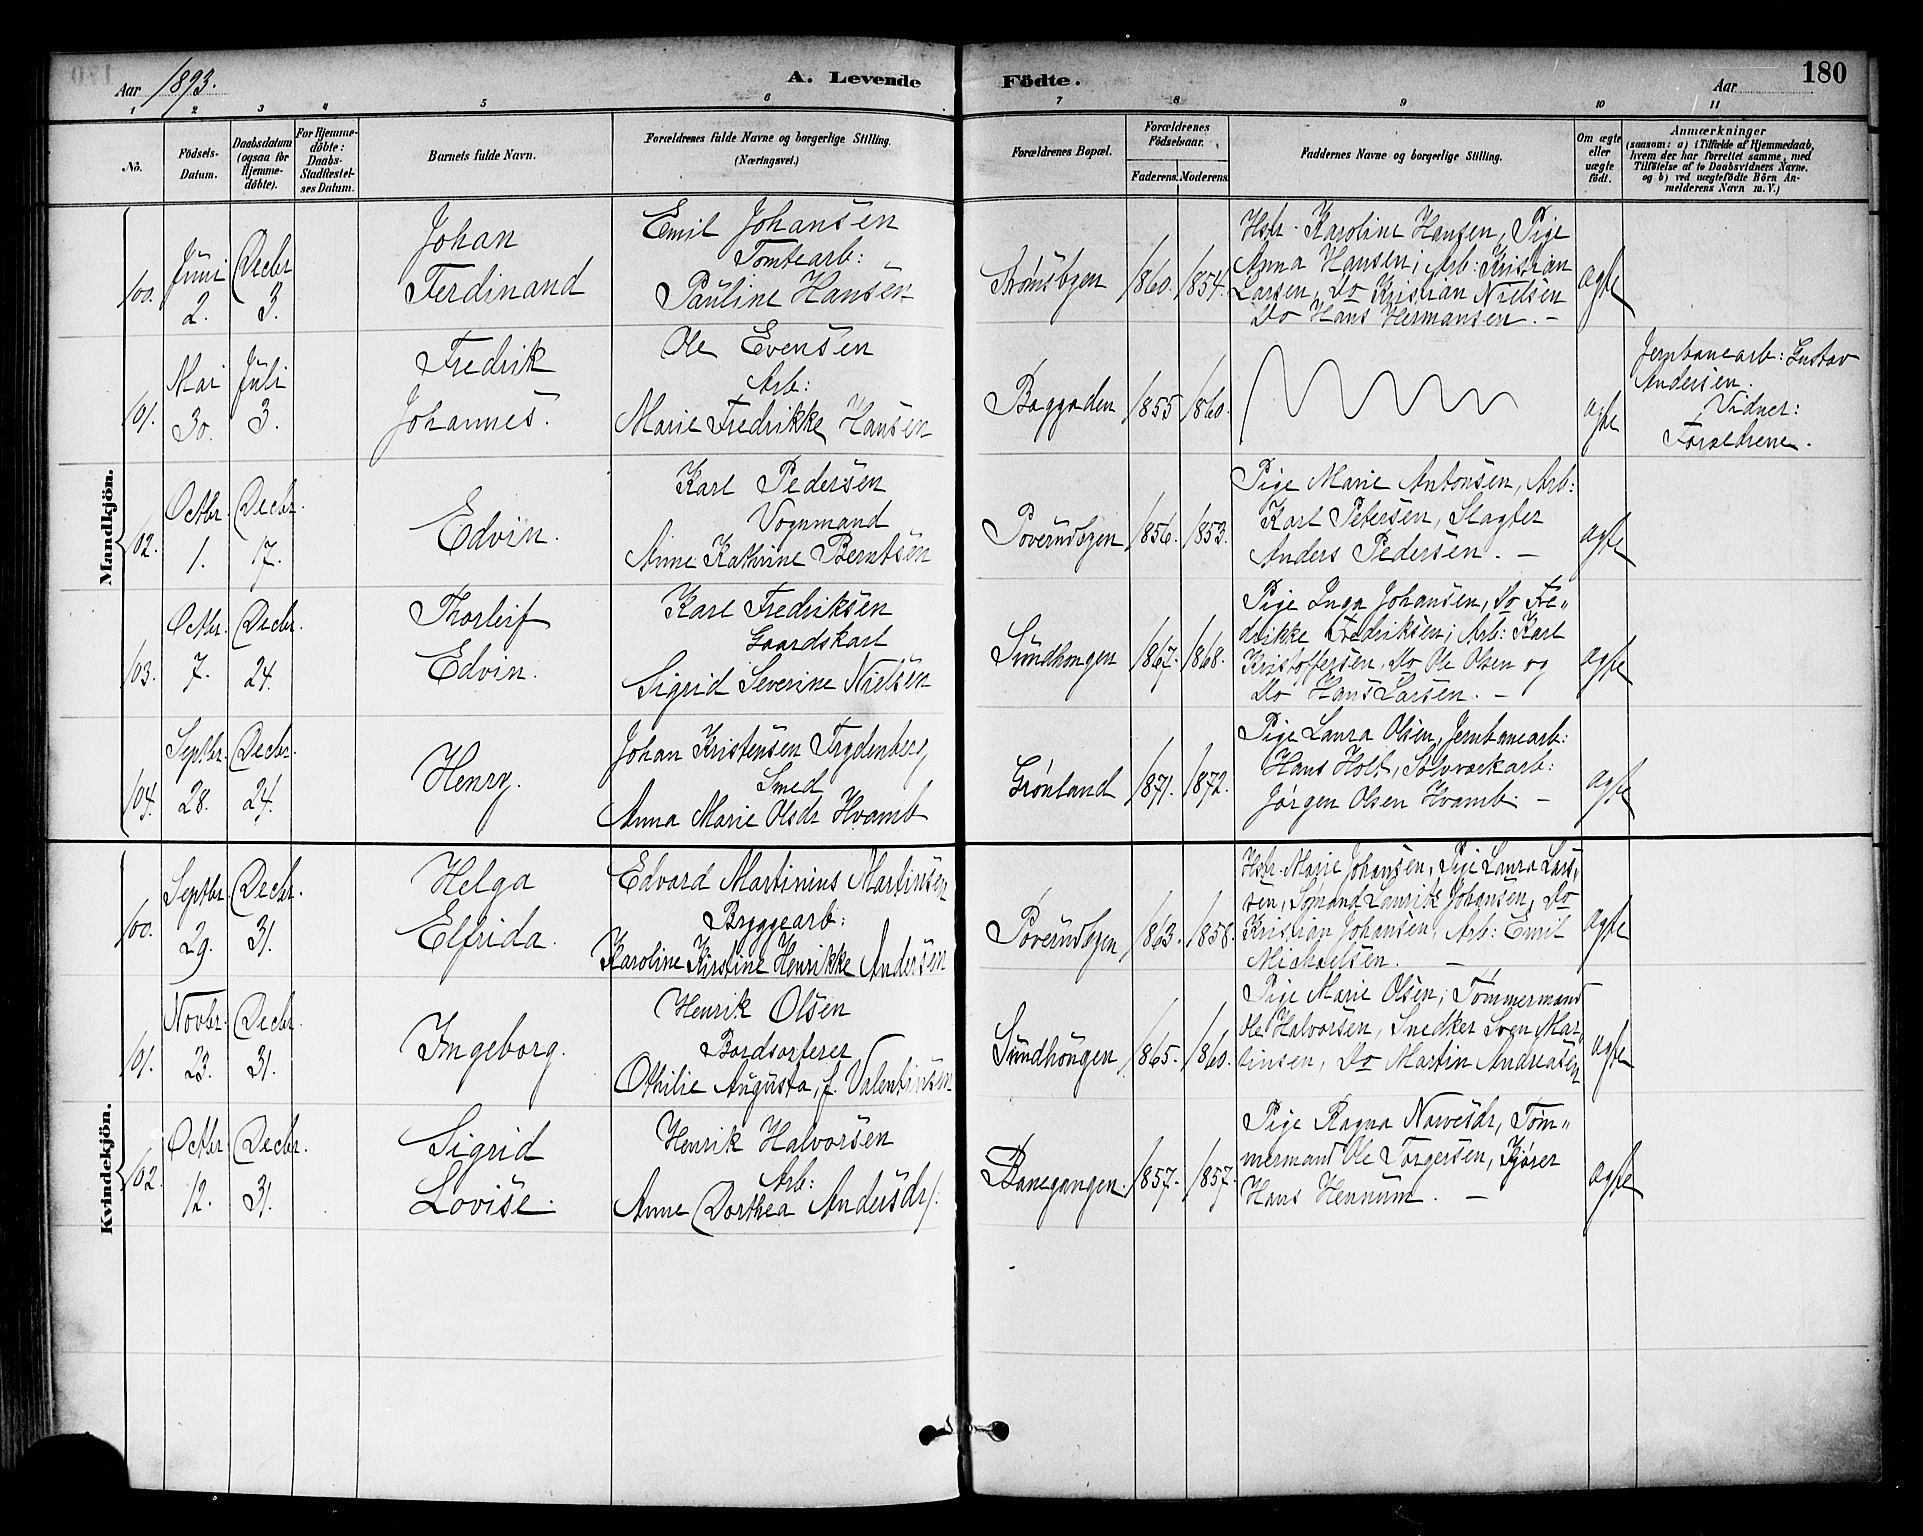 Aar 1893.
A. Levende Födte.
Aar
180
1 2 3 4 5 6 7 8 9 10 11
No.
Födsels-Datum.
Daabsdatum (ogsaa for Hjemme-döbte).
For Hjemme-döbte: Daabs-Stadfæstel-ses Datum.
Barnets fulde Navn.
Forældrenes fulde Navne og borgerlige Stilling. (Næringsvei.)
Forældrenes Bopæl.
Forældrenes Födselsaar.
Faderens.
Moderens.
Faddernes Navne og borgerlige Stilling.
Om ægte eller uægte födt.
Anmærkninger
(saasom: a) i Tilfælde af Hjemmedaab,
hvem der har forrettet samme, med
Tilföielse af to Daabsvidners Navne,
og b) ved uægtefödte Börn An-
melderens Navn m. V.)
Mandkjön.
100.
Juni 2.
Decbr 3.
Johan
Ferdinand
Emil Johansen
Tomtearb:
Pauline Hansen
Strømsbgen
1860.
1854.
Hstr. Karoline Hansen, Pige
Anna Hansen; Arb: Kristian
Larsen, Do Kristian Nielsen
Do Hans Hermansen. –
ægte
101.
Mai 30.
Juli 3.
Fredrik
Johannes.
Ole Evensen
Arb:
Marie Fredrikke Hansen
Baggaden
1855
1860.
ægte
Jernbanearb: Gustav
Andersen.
Vidner:
Forældrene.
102.
Octbr 1.
Decbr. 17.
Edvin.
Karl Pedersen
Vognmand
Anne Kathrine Berntsen
Poverudbgen
1856.
1853.
Pige Marie Antonsen, Arb:
Karl Petersen, Slagter
Anders Pedersen. –
ægte
103.
Octbr. 7.
Decbr. 24.
Thorleif
Edvin.
Karl Fredriksen
Gaardskarl
Sigrid Severine Nielsen
Sundhougen
1867.
1868.
Pige Inga Johansen, Do Fre„
drikke Fredriksen; Arb: Karl
Kristoffersen, Do Ole Olsen og
Do Hans Larsen. –
ægte
104.
Septbr. 28.
Decbr. 24.
Henry.
Johan Kristensen Frydenberg,
Smed
Anna Marie Olsdr Hvamb
Grønland
1871.
1872.
Pige Laura Olsen, Jernbanearb:
Hans Holt, Sølvværkarb:
Jørgen Olsen Hvamb. –
ægte
Kvindekjön.
100.
Septbr. 29.
Decbr. 31.
Helga
Elfrida.
Edvard Martinius Martinsen
Bryggearb:
Karoline Kirstine Henrikke Andersen
Poverudbgen
1863.
1858.
Hstr. Marie Johansen, Pige Laura Lars„
sen, Sømand Laurits Johansen, Do
Kristian Johansen, Arb: Emil
Michaelsen. –
ægte
101.
Novbr. 23.
Decbr. 31.
Ingeborg.
Henrik Olsen
Bordsorterer
Othilie Augusta, f. Valentinsen
Sundhougen
1865.
1860.
Pige Marie Olsen; Tømmermand
Ole Halvorsen, Snedker Sven Mar„
tinsen, Do Martin Andreasen
ægte
102.
Octbr. 12.
Decbr. 31.
Sigrid
Lovise.
Henrik Halvorsen
Arb:
Anne Dorthea Andersdr/:
Banegangen.
1857.
1857.
Pige Ragna Narvesdr, Tøm„
mermand Ole Torgersen, Kjører
Hans Hennum. –
ægte